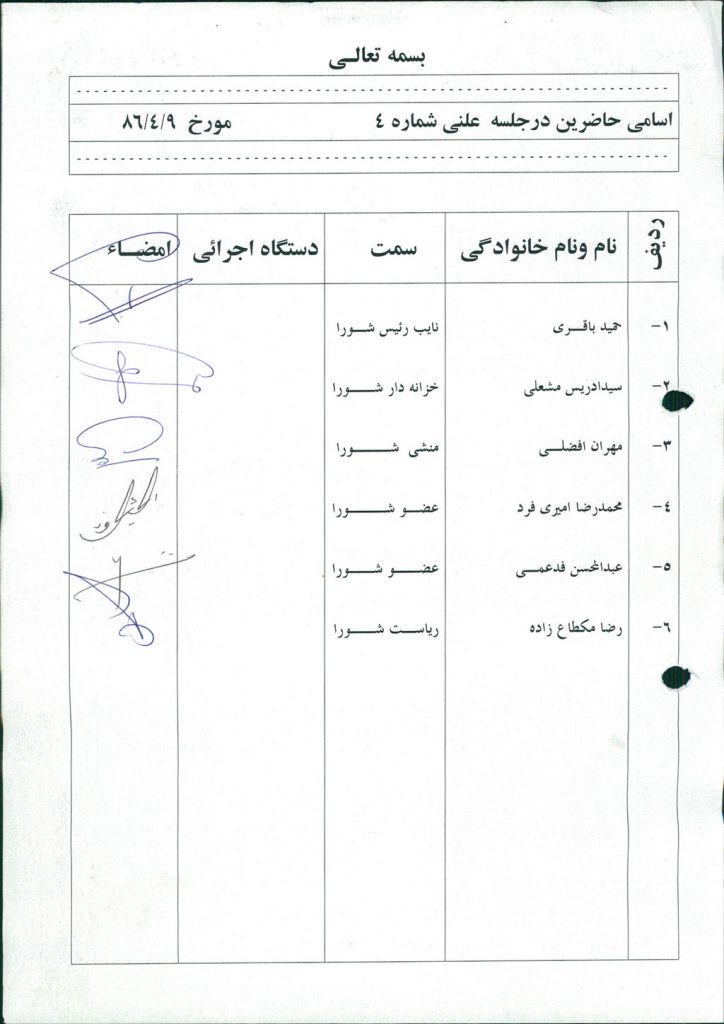 بسمه تعالی
اسامی حاضرین درجلسه علنی شماره ٤ مورخ ٨٦/٤/٩
ردیف نام ونام خانوادگی سمت دستگاه اجرائی امضاء
١- حمید باقری نایب رئیس شورا
٢- سیدادریس مشعلی خزانه دار شورا
٣- مهران افضلی منشی شورا
٤- محمدرضا امیری فرد عضو شورا
٥- عبدالمحسن فدعمی عضو شورا
٦- رضا مکطاع زاده ریاست شورا